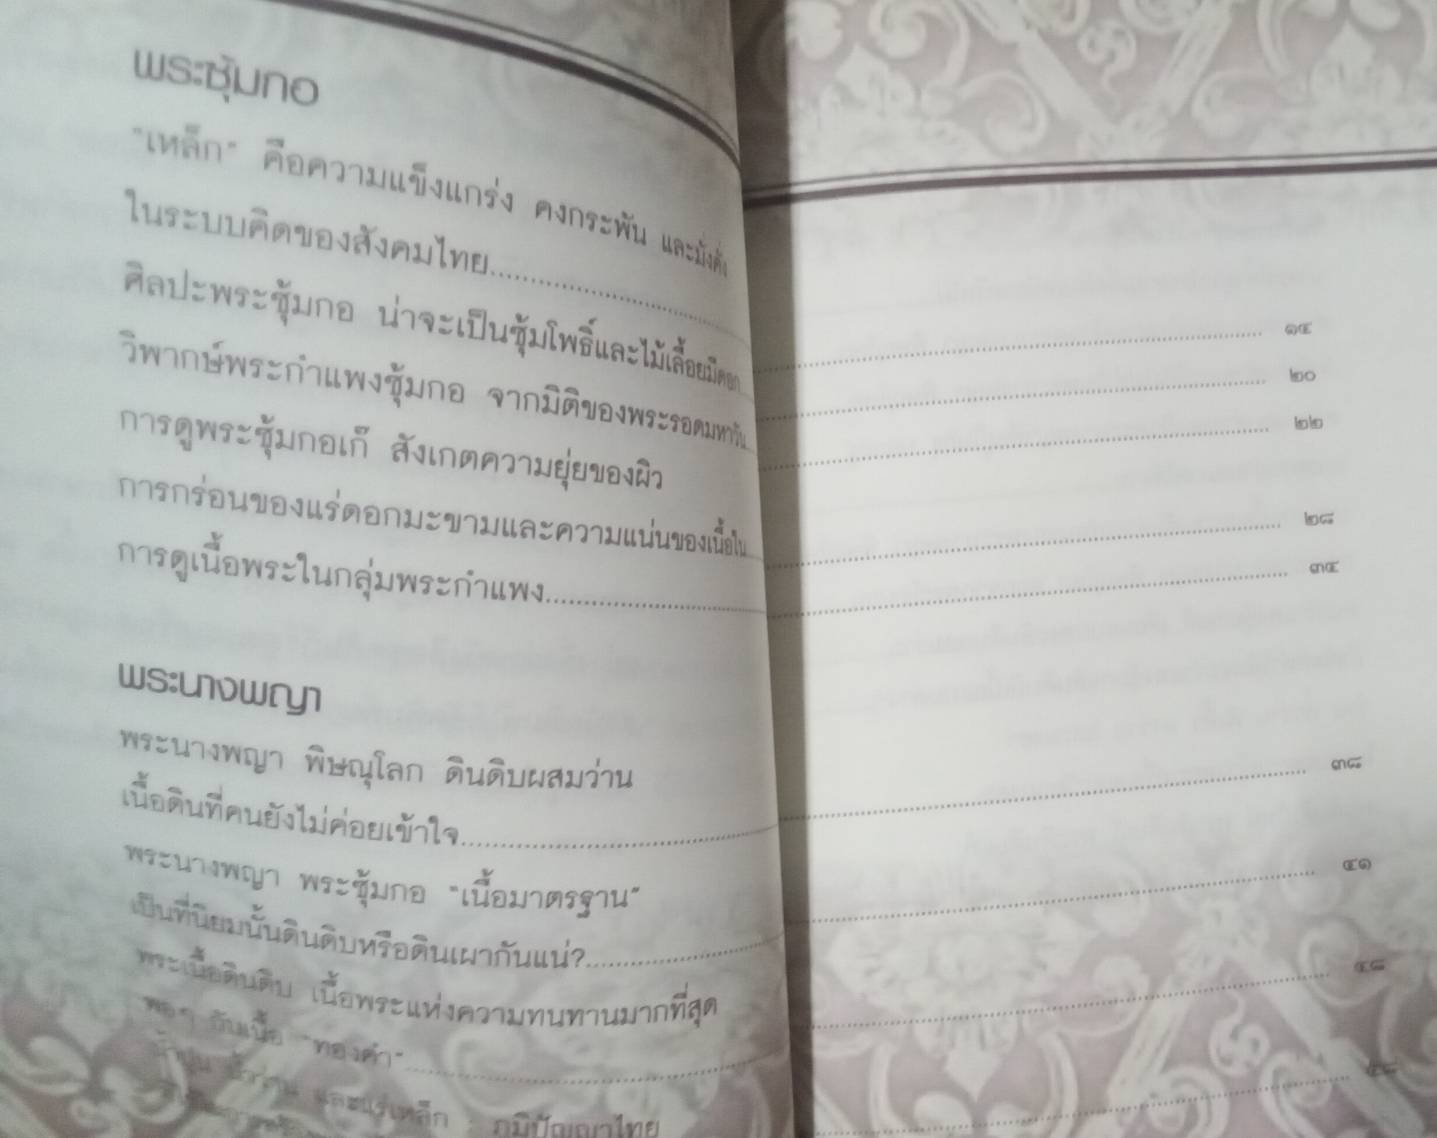 พระซุ้มกอ
"เหล็ก" คือความแข็งแกร่ง คงกระพัน และมั่งคั่ง
ในระบบคิดของสังคมไทย.......... ๑๔
ศิลปะพระซุ้มกอ น่าจะเป็นซุ้มโพธิ์และไม้เลื้อยมีดอก.......... ๒๐
วิพากษ์พระกำแพงซุ้มกอ จากมิติของพระรอดมหาวัน.......... ๒๒
การดูพระซุ้มกอเก๊ สังเกตความยุ่ยของผิว
การกร่อนของแร่ดอกมะขามและความแน่นของเนื้อใน.......... ๒๘
การดูเนื้อพระในกลุ่มพระกำแพง.......... ๓๔
พระนางพญา
พระนางพญา พิษณุโลก ดินดิบผสมว่าน
เนื้อดินที่คนยังไม่ค่อยเข้าใจ.......... ๓๘
พระนางพญา พระซุ้มกอ "เนื้อมาตรฐาน"
เป็นที่นิยมนั้นดินดิบหรือดินเผากันแน่?.......... ๔๑
พระเนื้อดินดิบ เนื้อพระแห่งความทนทานมากที่สุด
พอๆ กับเนื้อ "ทองคำ".......... ๔๘
และแร่เหล็ก : ภูมิปัญญาไทย